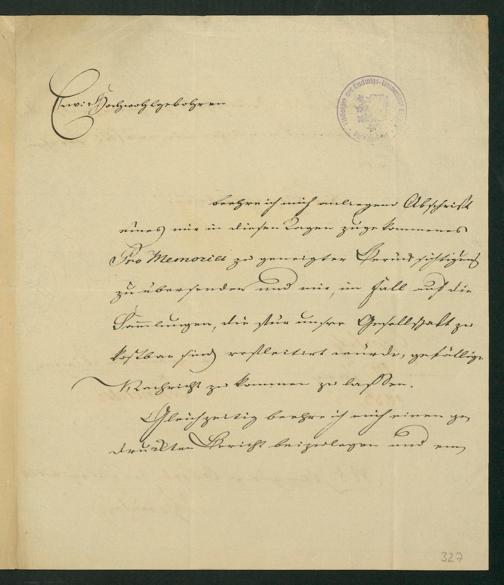 Ewr Hochwohlgebohren
beehre ich mich anliegend Abschrift
eines mir in diesen Tagen zugekommenes
Pro Memoria zu geneigter Berücksichtigung
zu übersenden und mir, im Fall auf die
Sammlungen, die für unsre Gesellschaft zu
kostbar sind reflectirt würde, gefällige
Nachricht zu kommen zu lassen.
Gleichzeitig beehre ich mich einen ge
druckten Bericht beizulegen und um
327